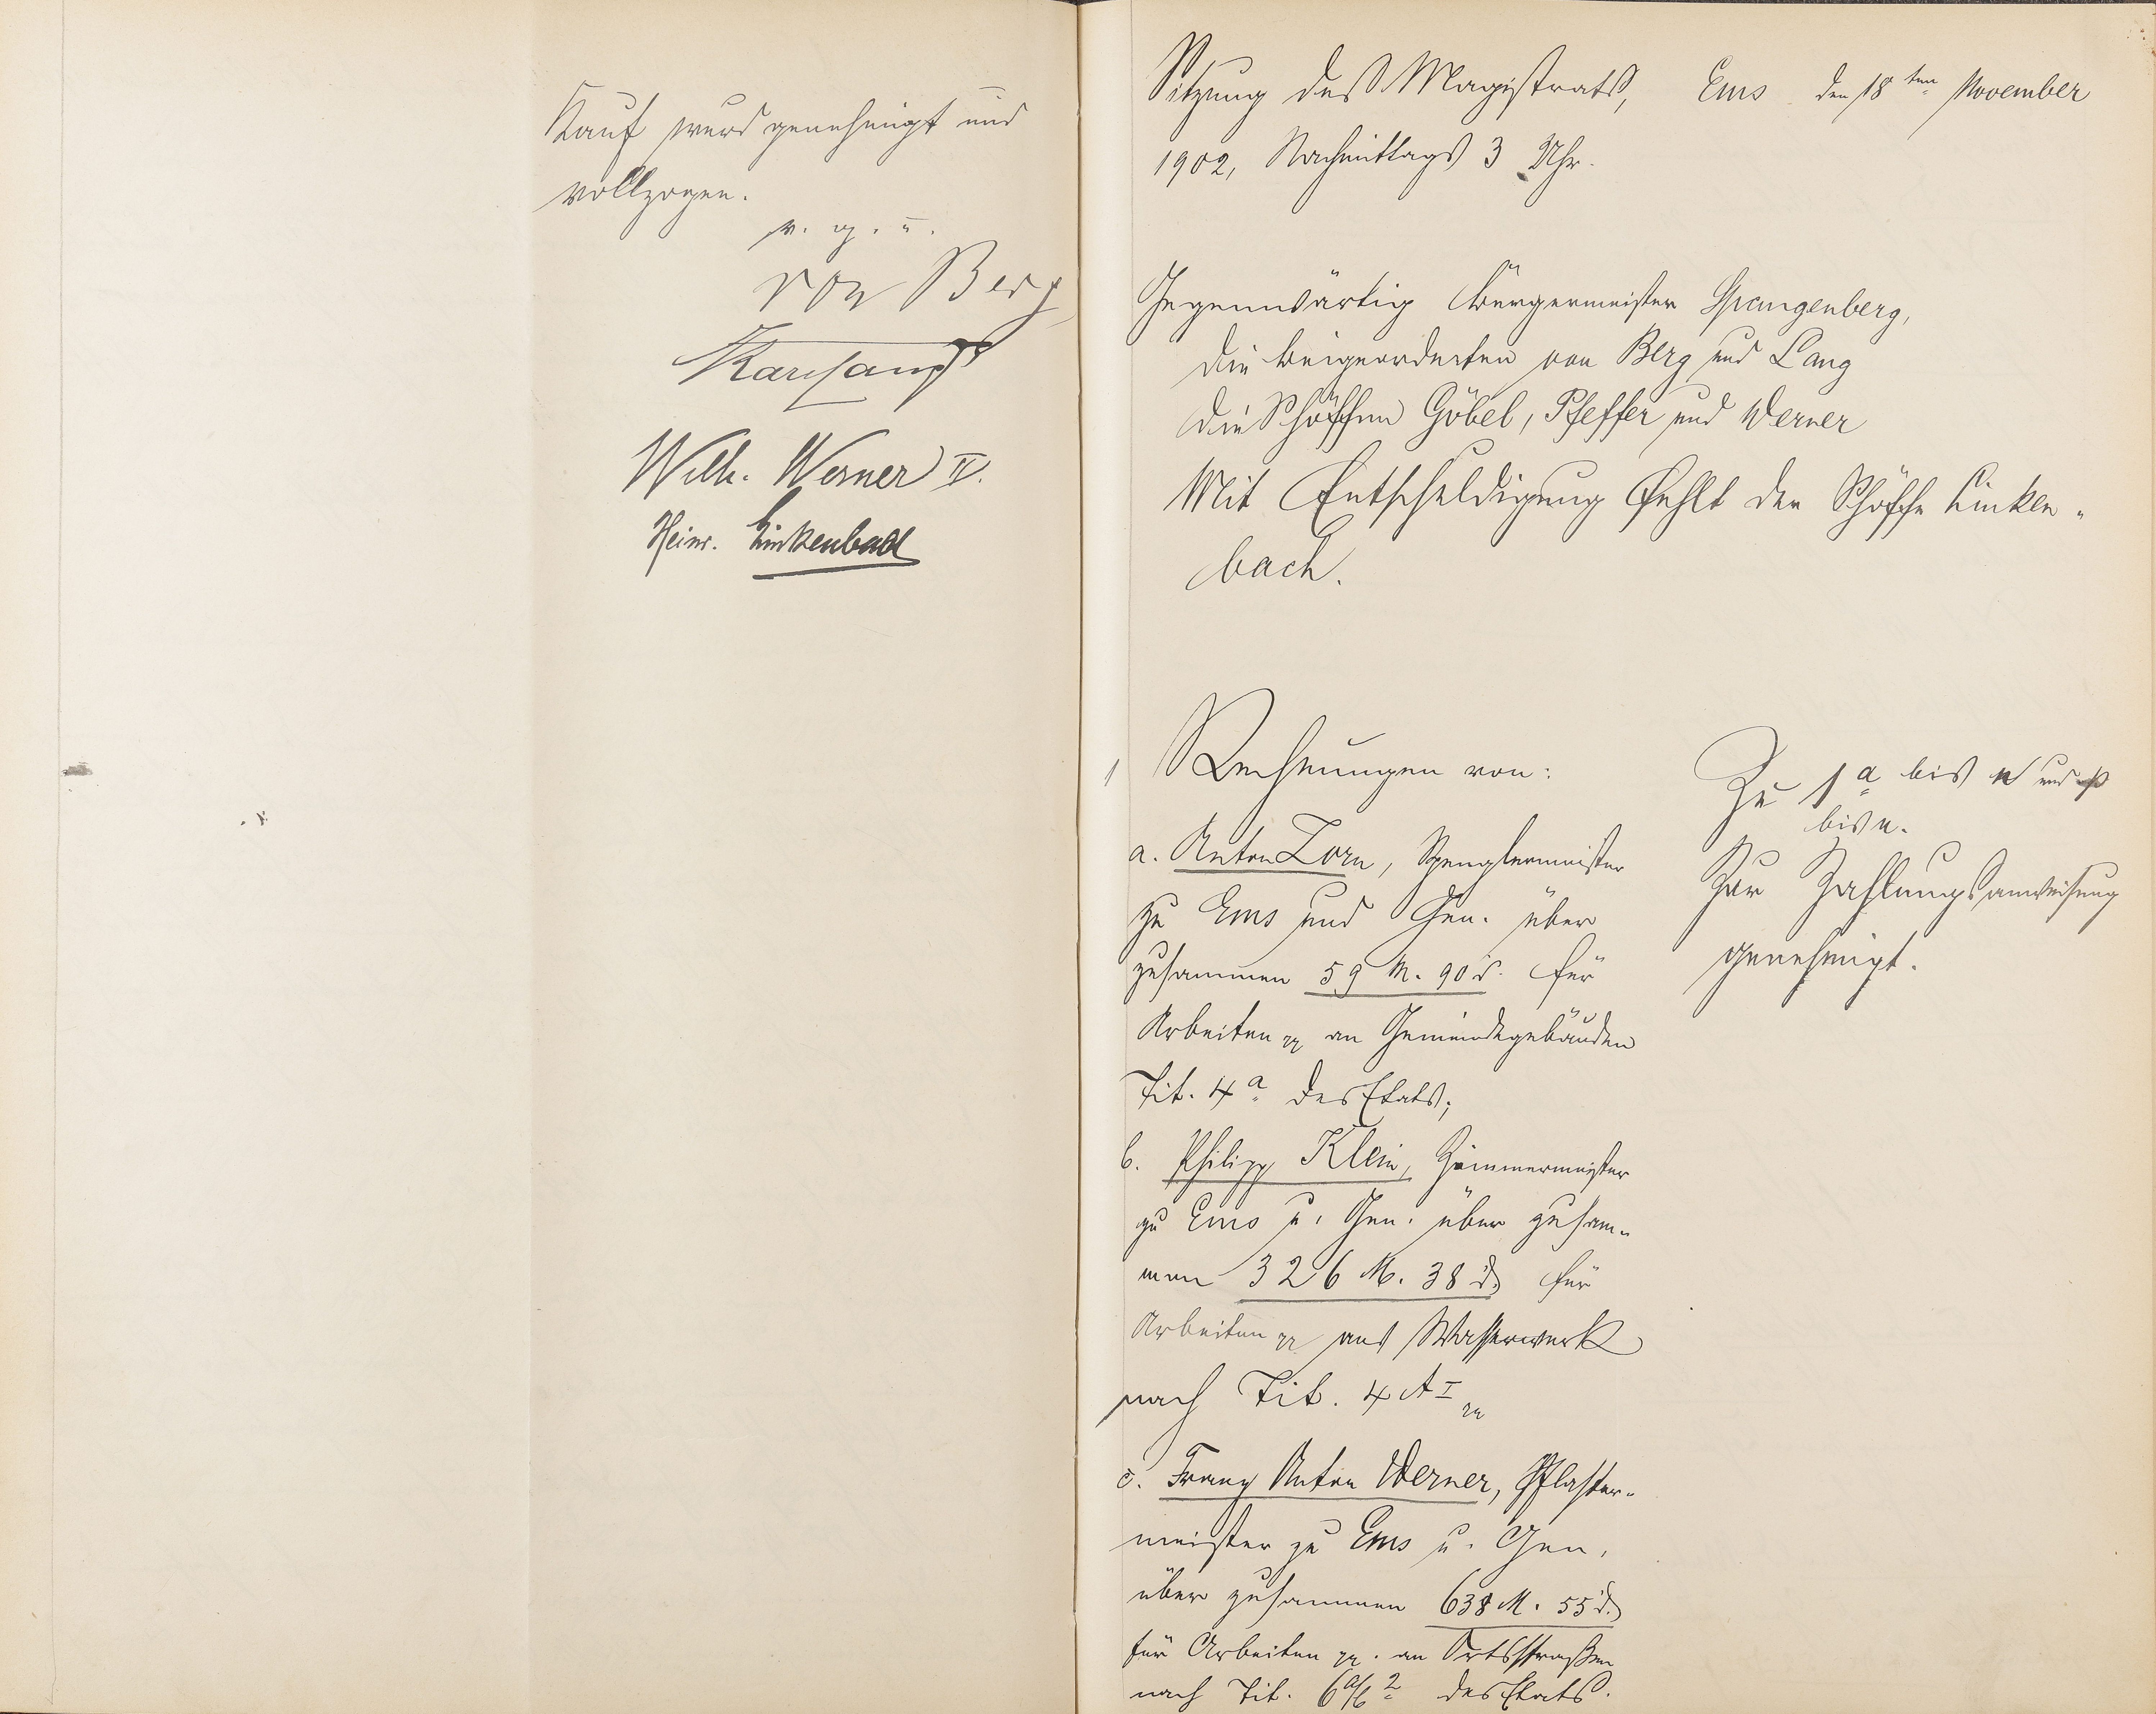 Kauf wurd genehmigt und
vollzogen.
v. g. u.
von Berg
Karl Lang
Wilh. Werner II.
Heinr. Linkenbach
Sitzung des Magistrats, Ems den 18ten November
1902, Nachmittags 3 Uhr.
Gegenwärtig Bürgermeister Spangenberg,
die Beigeordneten von Berg und Lang
die Schöffen Göbel, Pfeffer und Werner
Mit Entschuldigung fehlt der Schöffe Linken-
bach.
1 Rechnungen von:
a. Anton Zorn, Spenglermeister
zu Ems und Gen. über
zusammen 59 M. 90 ₰. für
Arbeiten pp an Gemeindegebäuden
Tit. 4a des Etats;
b. Philipp Klein, Zimmermeister
zu Ems u. Gen. über zusam-
men 326 M. 38 ₰ für
Arbeiten pp ans Wasserwerk
nach Tit. 4 A I pp
c. Franz Anton Werner, Pflaster-
meister zu Ems u. Gen.
über zusammen 638 M. 55 ₰
für Arbeiten pp. an Ortsstraßen
nach Tit. 6 a/b 2 des Etats.
Zu 1 a bis n und p
bis u.
Zur Zahlungsanweisung
genehmigt.